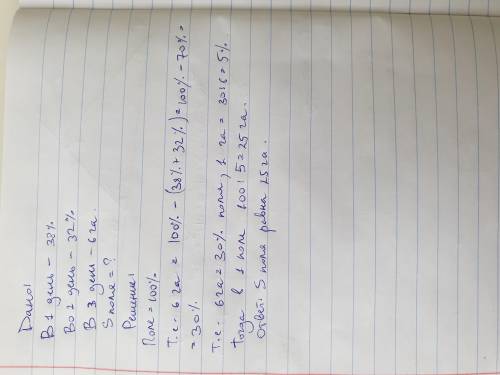 Дано:
В 1 день - 38%
Во 2 день - 32%
В 3 день - 6 га.
S поля = ?
Решение:
Поле = 100%
Т.е. 6 га = 100% - (38% + 32%) = 100% - 70% =
= 30%.
Т.е. 6 га = 30% поля, 1 га = 30:6 = 5%.
Тогда в 1 поле 100:5 = 25 га.
Ответ: S поля равна 25 га.